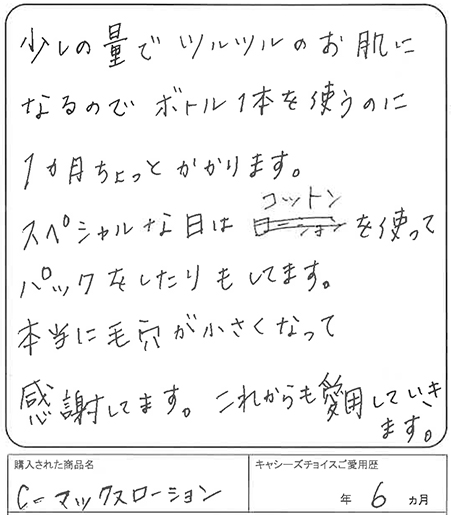 少しの量で ツルツルのお肌に
なるので ボトル1本を使うのに
1カ月ちょっと かかります。
スペシャルな日は コットン を使って
パックをしたりもしてます。
本当に毛穴が小さくなって
感謝してます。これからも愛用していき
ます。
購入された商品名
キャシーズチョイスご愛用歴
C-マックスローション
年 6 ヵ月